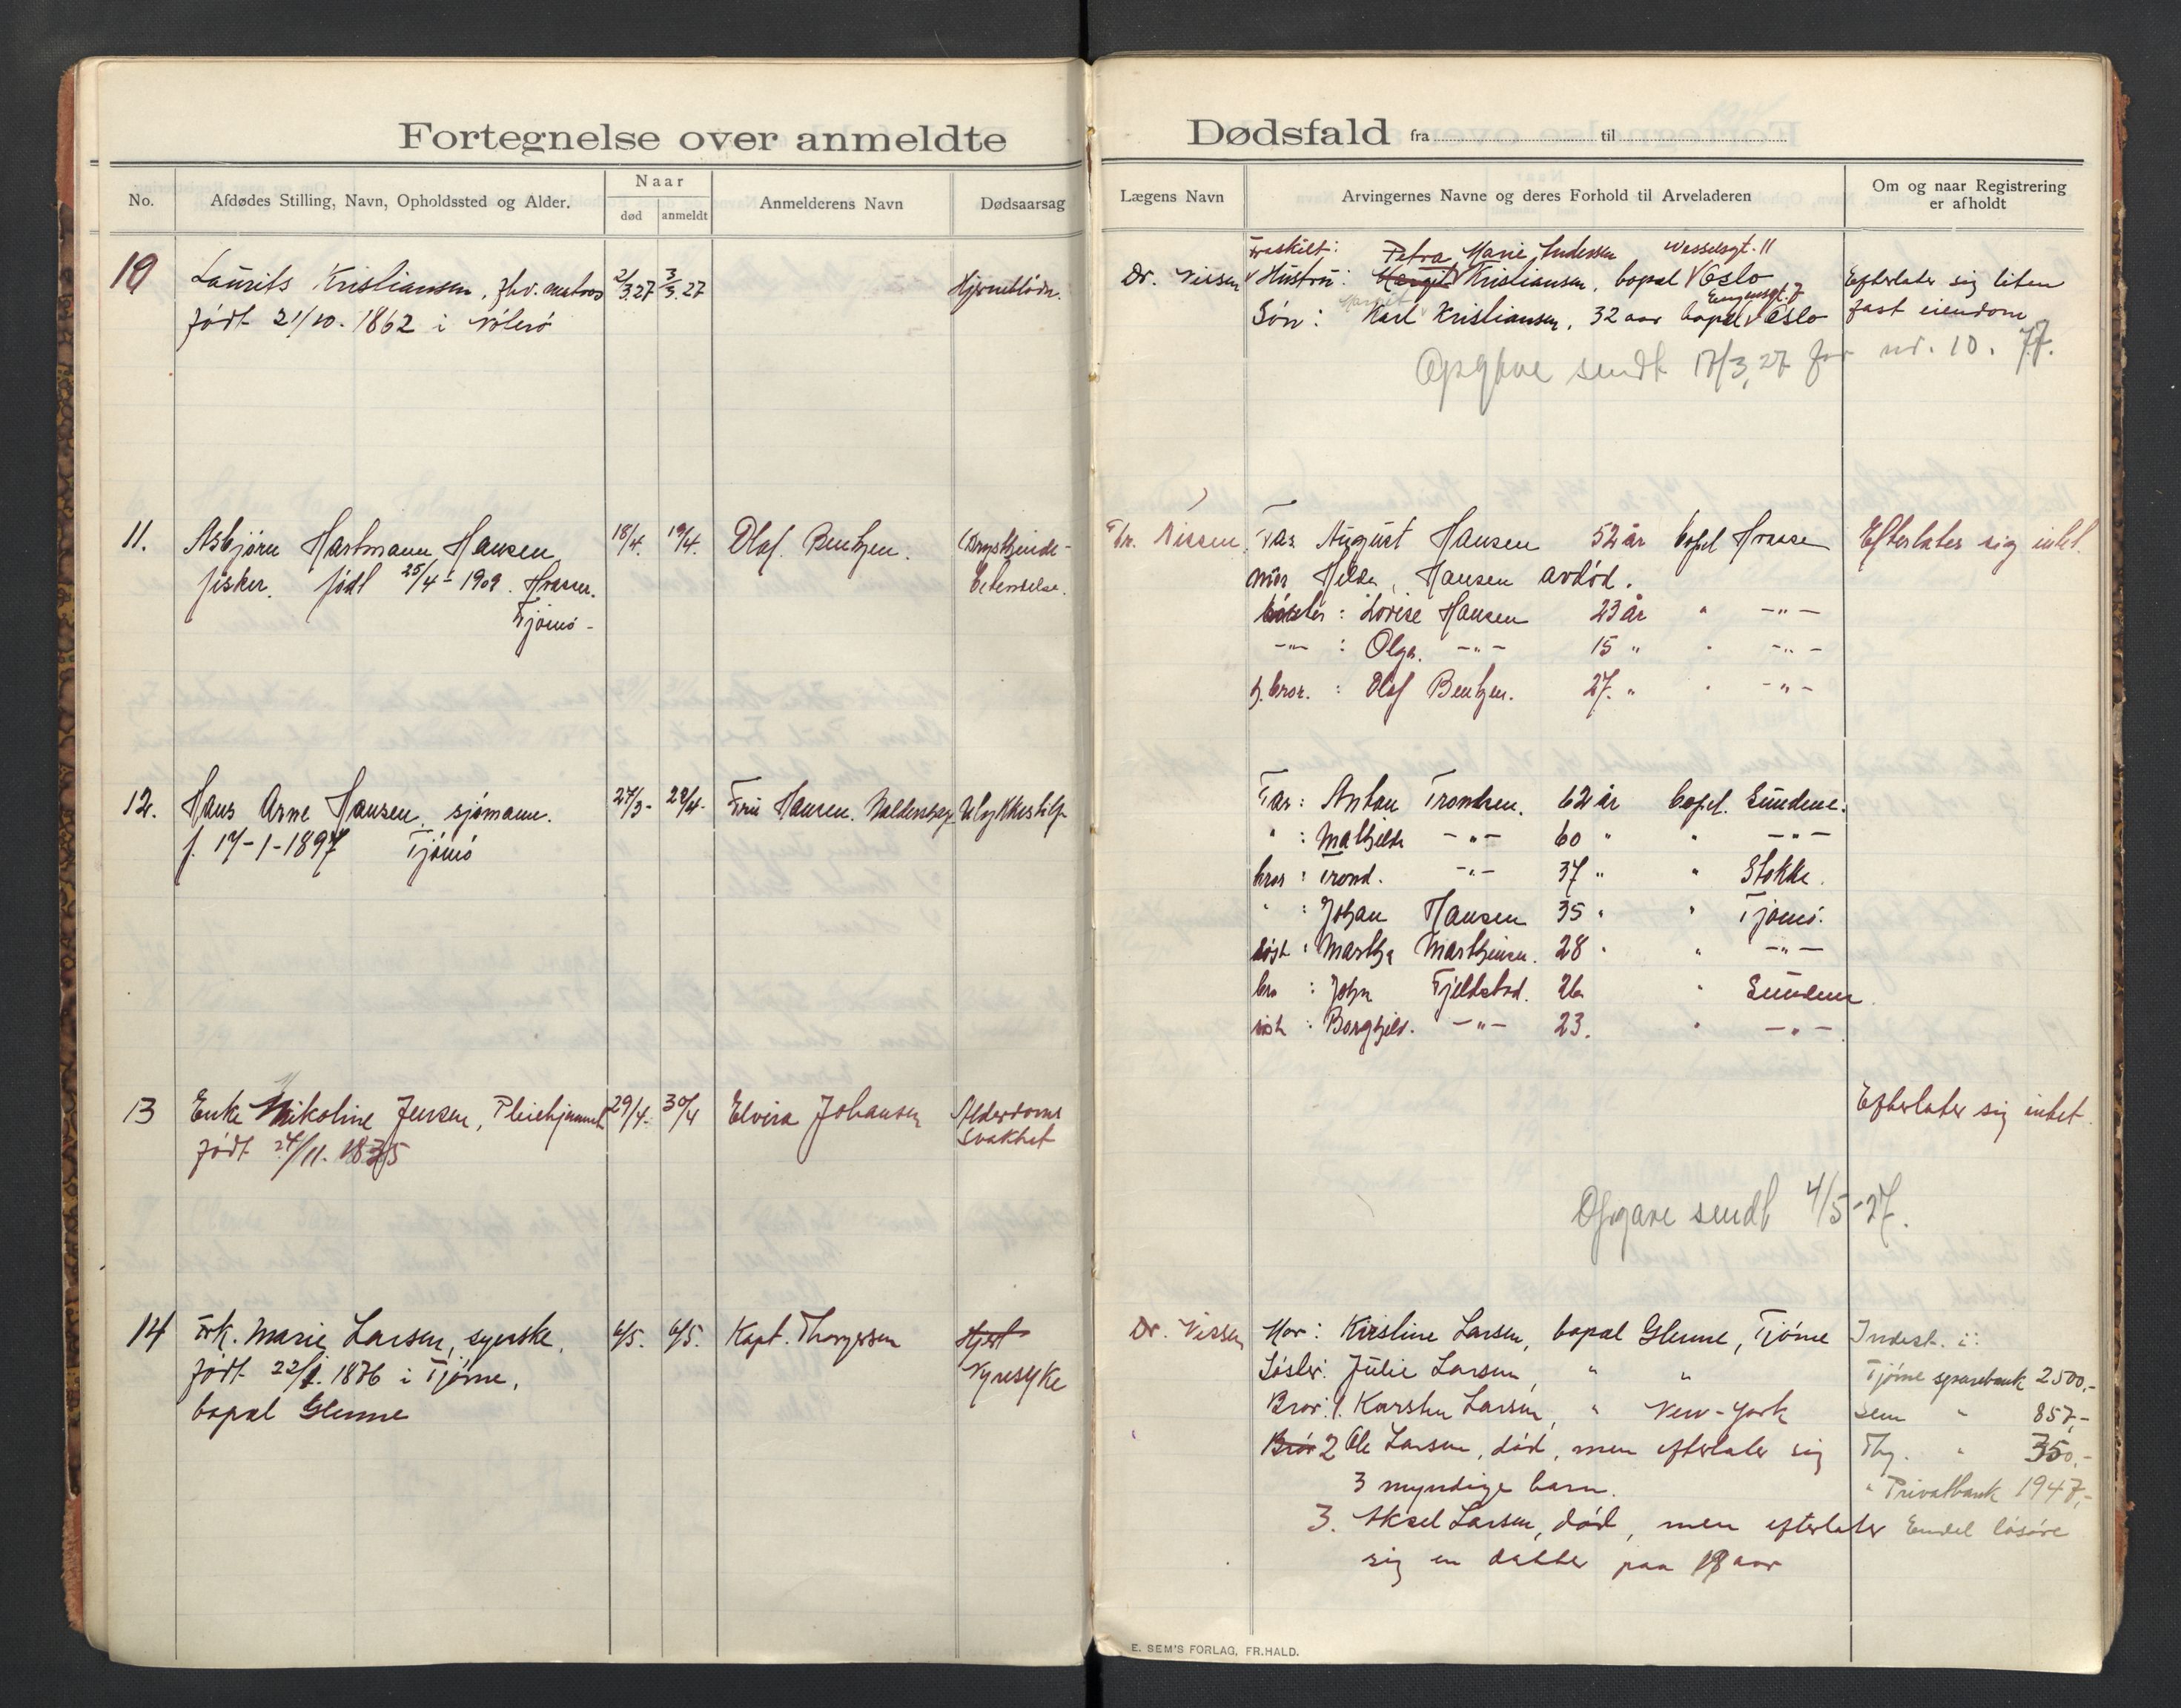 Fortegnelse over anmeldte
Dødsfald fra til
No.
Afdødes Stilling, Navn, Opholdssted og Alder.
Naar
død
anmeldt
Anmelderens Navn
Dødsaarsag
Lægens Navn
Arvingernes Navne og deres Forhold til Arveladeren
Om og naar Registrering
er afholdt
10
Laurits Kristiansen, fhv. matros
født 21/10. 1862 i
2/3.27
3/3.27
Hjerneblødn.
Dr. Nissen
Fraskilt: Petra Marie Andersen Wesselsgt. 11
Hustru: Margit Kristiansen, bopæl Oslo
Margit
Søn: Karl Kristiansen, 32 aar bopæl Oslo
Efterlater sig liten
fast eiendom
Opgave sendt 17/3.27 for nr. 10.
11.
Asbjørn Hartmann Hansen
fisker. født 25/4-1909. Hvasser.
Tjømø-
18/4.
19/4.
Olaf. Bentzen.
Brysthinde-
betennelse.
Dr. Nissen
Far August Hansen 52 år bopel Hvasser
mor Helda, Hansen avdød.
søster : Lovise Hansen 23 år " -"-
-"- : Olga. -"- 15 " " -"-
h. bror. : Olaf Bentzen. 27. " " -"-
Efterlater sig intet.
12.
Hans Arne Hansen, sjømann.
f. 17-1-1897 Tjømø
27/3-
28/4-
Fru Hansen.
Ulykkestilf.
Far: Anton Trondsen. 62 år bopel. Sundene.
" : Mathilde -"- 60 " " -"-
bror : Trond. -"- 37 " " Stokke.
" : Johan Hansen 35 " " Tjømø.
søst : Martha Marthinsen. 28 " " -"-
bro : John Fjeldstad. 26 " Sundene.
søst : Borghild. -"- 23. " -"-
13
Enke Nikoline Jensen, Pleiehjemmet
født 24/11. 1835
29/4.
30/4
Elvira Johansen
Alderdoms
svakhet
Efterlater sig intet.
Opgave sendt 4/5-27.
14
Frk. Marie Larsen, syerske,
født 22/1. 1876 i Tjøme,
bopæl Glenne
6/5.
6/5.
Kapt. Thorgersen
Hjert
Nyresyke
Dr. Nissen
Mor: Kirstine Larsen, bopæl Glenne, Tjøme
Søster: Julie Larsen, " "
Bror: 1. Karsten Larsen, " New-York
Bror 2 Ole Larsen, død, men efterlater sig
3 myndige barn.
3. Aksel Larsen, død, men efterlater
sig en datter paa 18 aar
Indest. i:
Tjøme sparebank 2500,-
Sem " 857,-
Tbg. " 350,-
" Privatbank 1947,-
Endel løsøre
E. SEM'S FORLAG, FR.HALD.